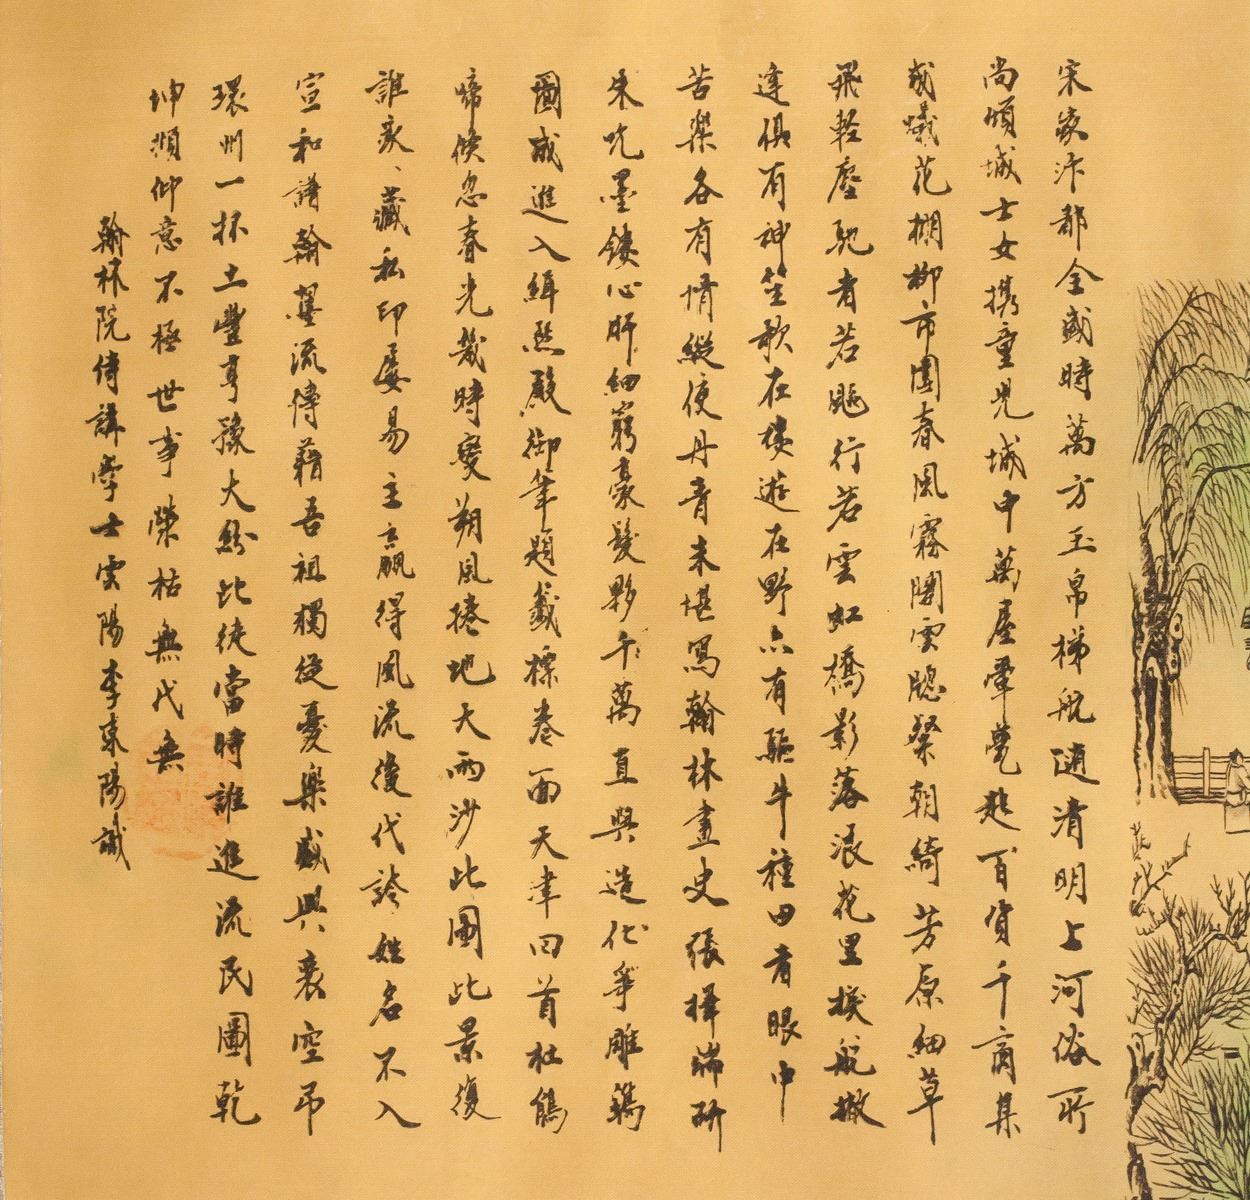 宋家汴都全盛時萬方玉帛梯航隨清明上河俗所
尚頃城士女攜童兒城中萬屋翬甍起百貨千商集
成蟻花棚柳市圍春風霧閣雲牕粲朝綺芳原細草
飛輕塵馳者若飈行若雲虹橋影落浪花里捩舵撇
篷俱有神笙歌在樓遊在野亦有驅牛種田者眼中
苦樂各有情縱使丹青未堪寫翰林畫史張擇端研
朱吮墨鏤心肝細窮毫髮夥千萬直與造化爭雕鐫
圖成進入緝熙殿御筆題籤標卷面天津回首杜鵑
啼倏忽春光幾時變朔風捲地天雨沙此圖此景復
誰家家藏私印屢易主贏得風流後代誇姓名不入
宣和譜翰墨流傳藉吾祖獨從憂樂感興衰空弔
環州一抔土豐亨豫大紛此徒當時誰進流民圖乾
坤頫仰意不極世事榮枯無代無
翰林院侍講學士雲陽李東陽識